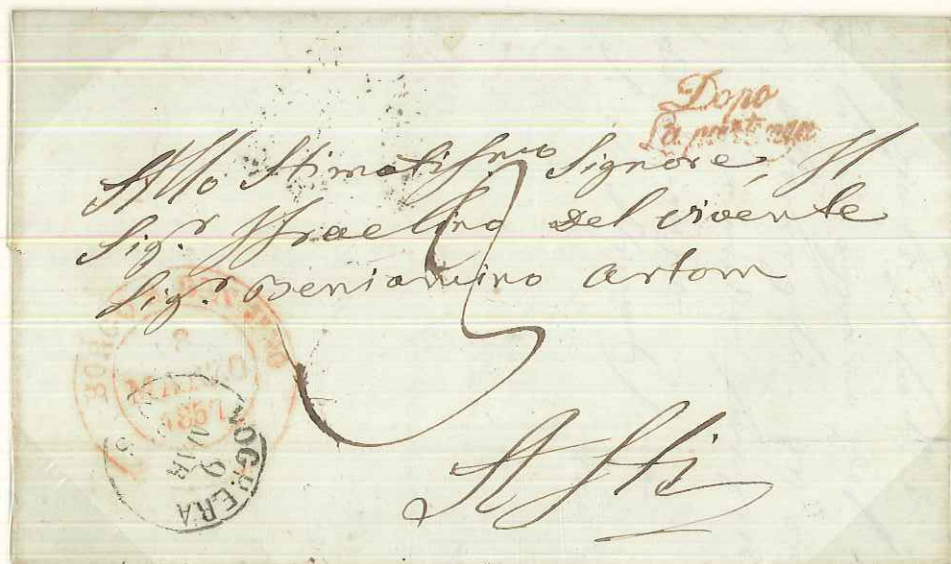 Dopo
La partenza
Allo Stimatissmo Signore, Il
Sigr. Israelino del vivente
Sigr. Beniamino Artom
3
BORGO S. DONNINO
8
MARZO
1857
VOGHERA
9
MAR
Asti